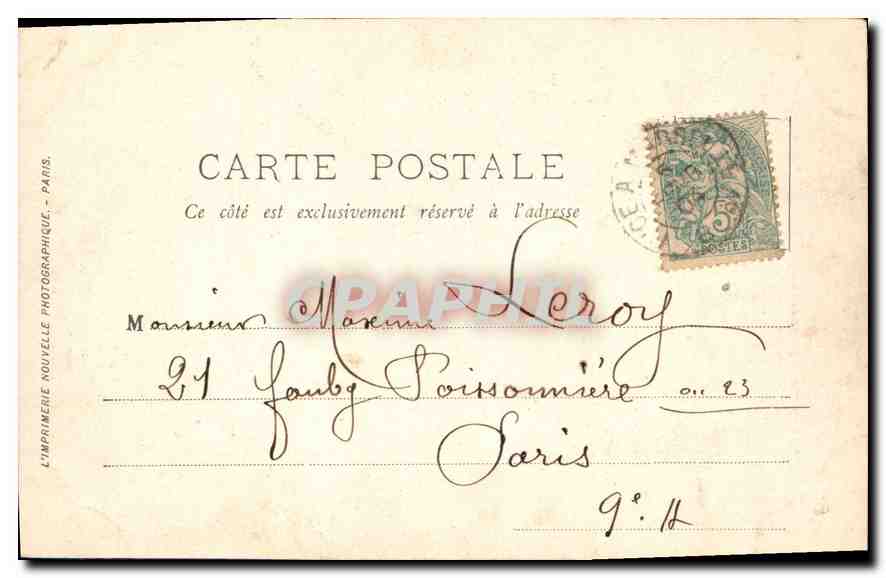 CARTE POSTALE
Ce côté est exclusivement réservé à l'adresse
Monsieur Maxime Leroy
21 Foubg Poissonnière ou 23
Paris
9e. A
L'IMPRIMERIE NOUVELLE PHOTOGRAPHIQUE. - PARIS.
CPAPHIL
5c
POSTES